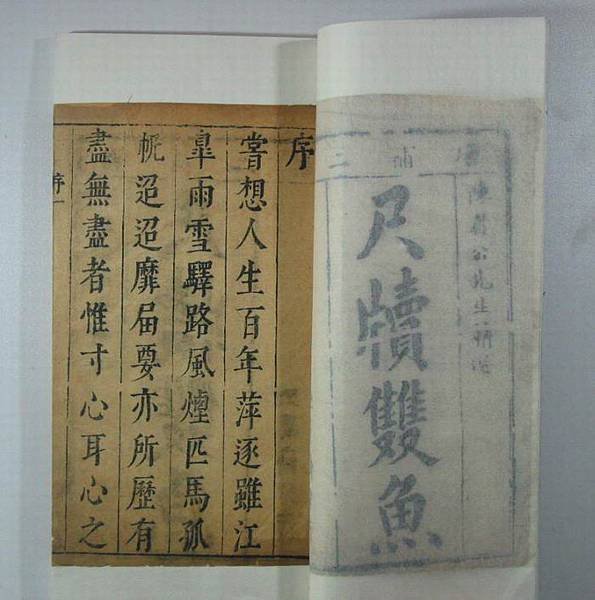 陳眉公先生
尺牘雙魚
序
嘗想人生一百年萍逐雖江
皐雨雪驛路風煙匹馬孤
帆迢迢靡届要亦所歷有
盡無盡者惟寸心耳心之
序一